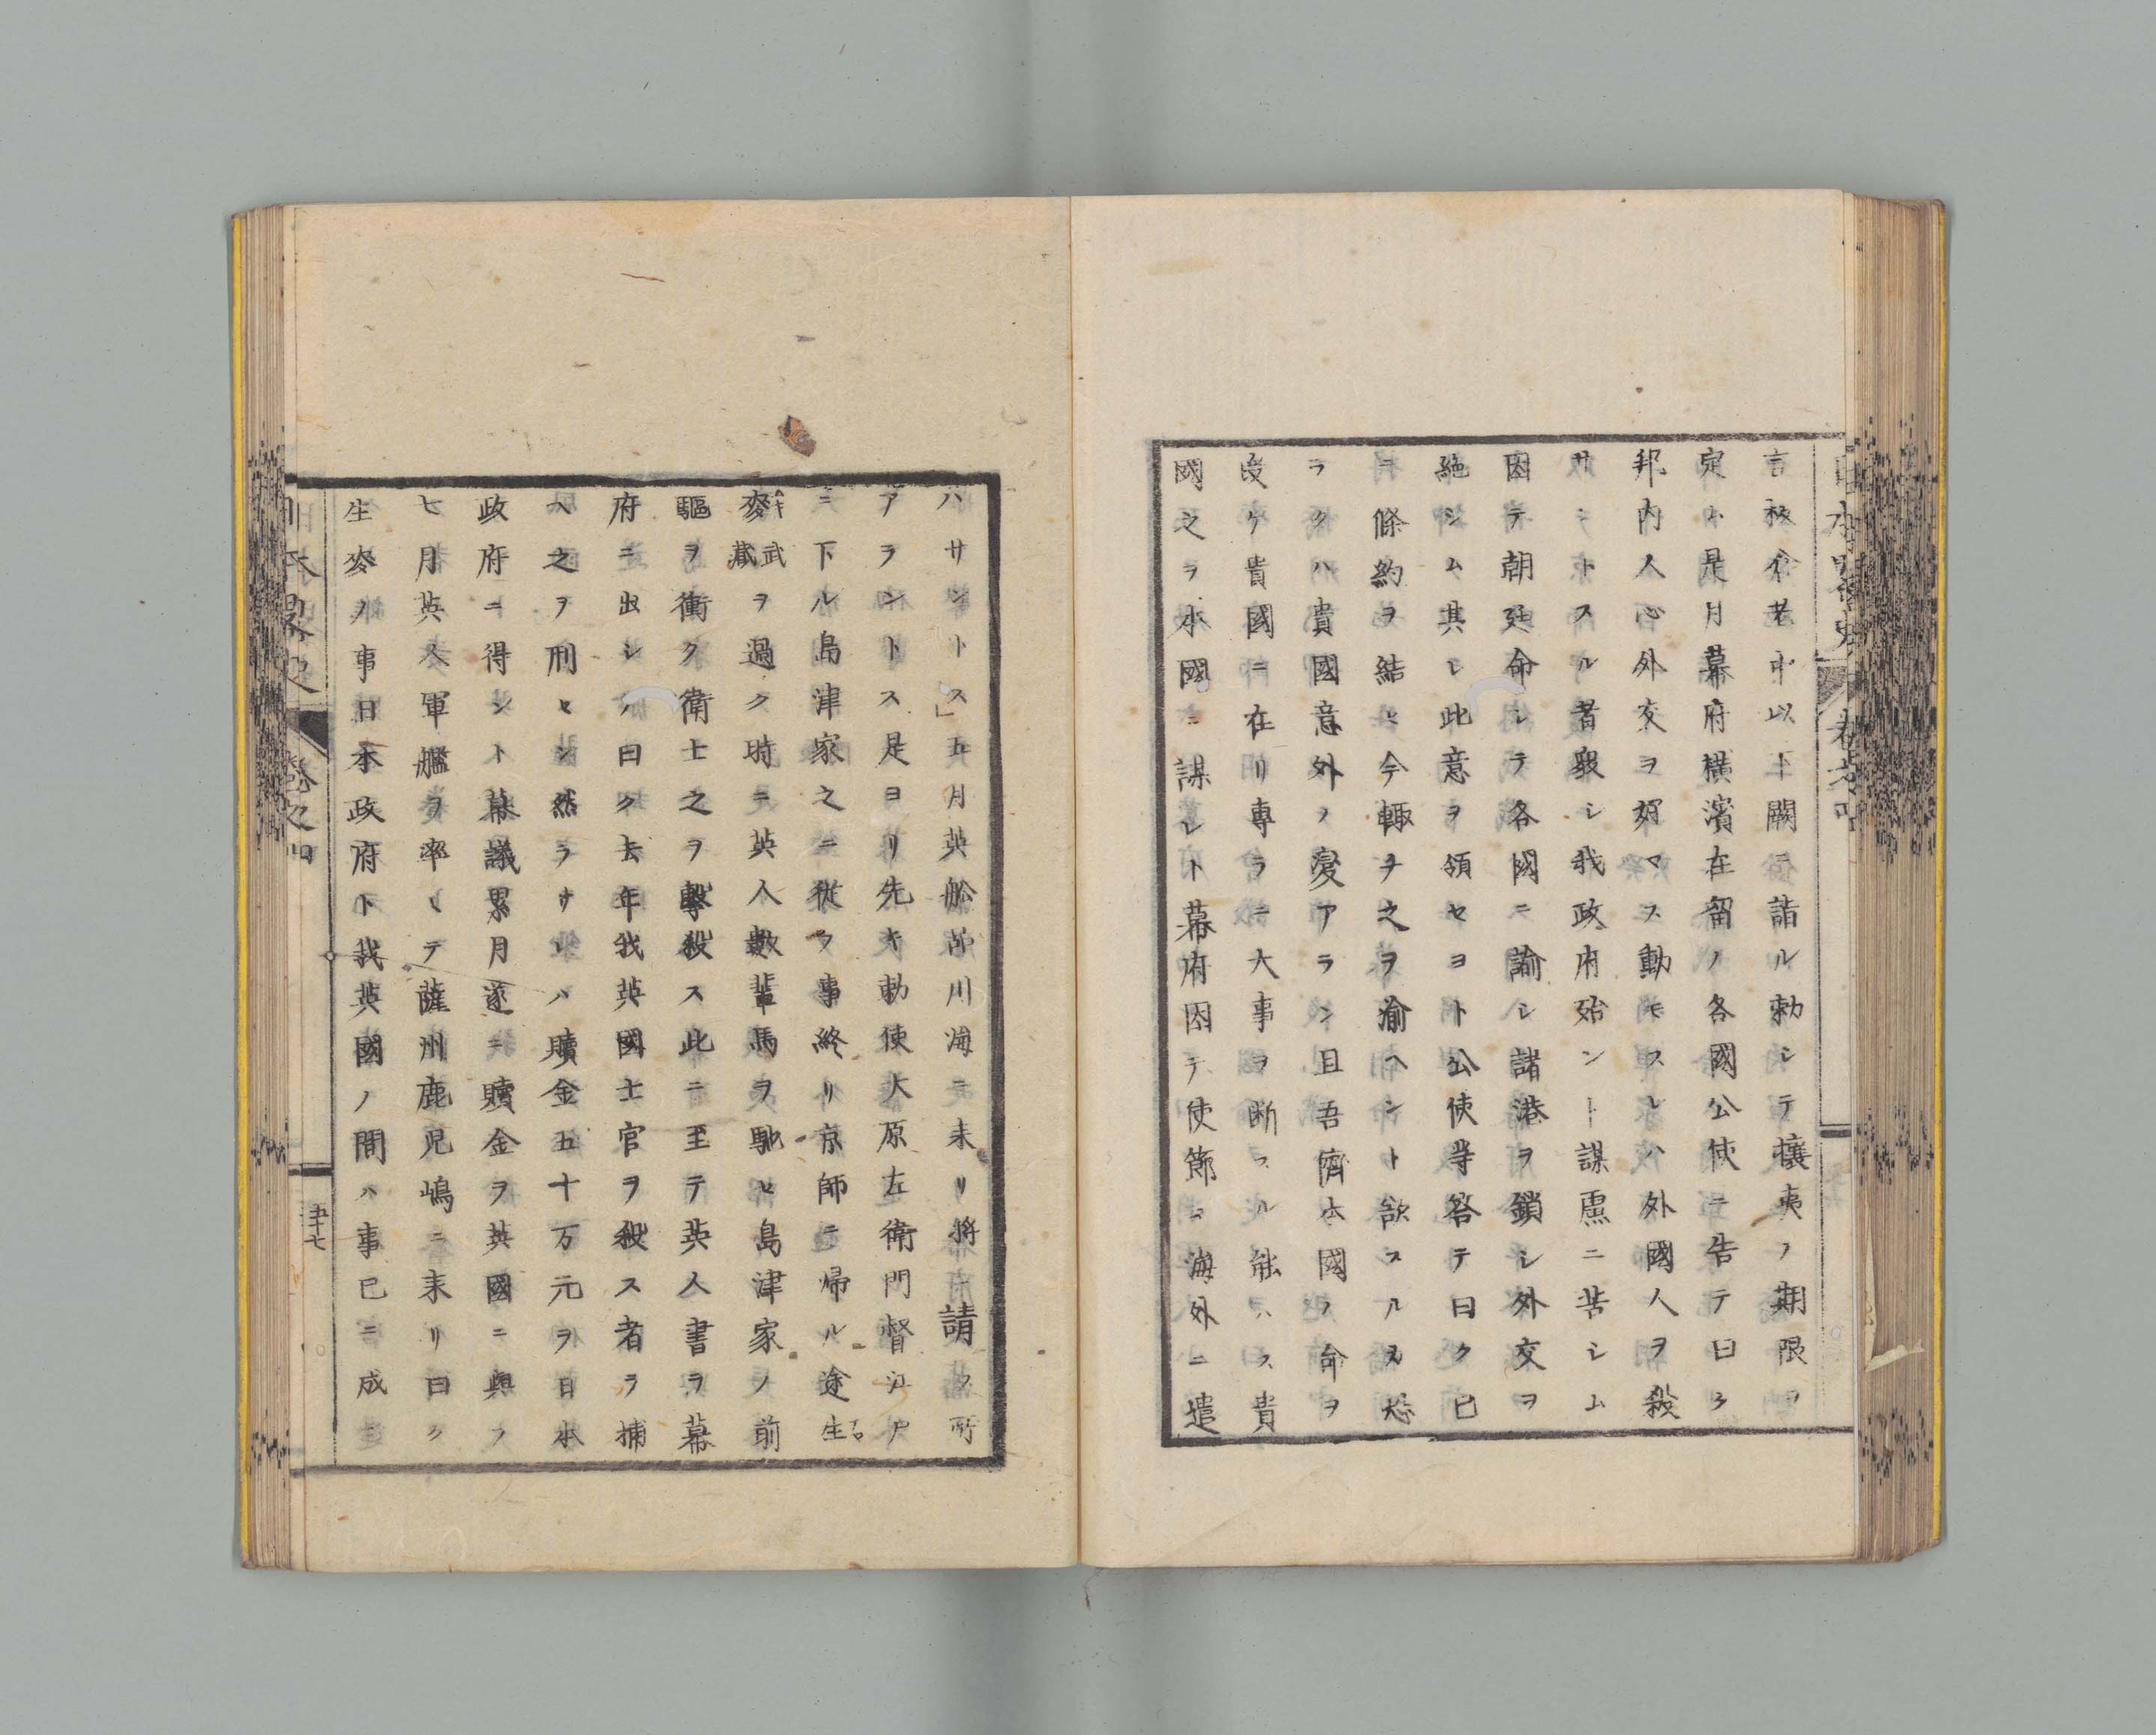 日本畧史 卷之四
言秡伱老中以下闕ニ詣ル勅シテ攘夷ノ期限ヲ
定ム是月幕府橫濱在留ノ各國公使ニ告テ曰ク
邦内人心外交ヲ好マス動モスレハ外國人ヲ殺
サントスル者衆シ我政府殆ント謀慮ニ苦シム
因テ朝廷命シテ各國ニ諭シ諸港ヲ鎖シ外交ヲ
絶シム其レ此意ヲ領セヨト公使等答テ曰ク已
ニ條約ヲ結ヒ今輙チ之ヲ渝ヘント欲スルス恐
ラクハ貴國意外ノ變アラン且吾儕本國ノ命ヲ
受ケ貴國ニ在リ專ラニ大事ヲ斷スル能ハス貴
國之ヲ本國ニ謀レト幕府因テ使節ヲ海外ニ遣
ハサントス」五月英舩品川海ニ来リ將ニ請フ所
アラントス是ヨリ先キ勅使大原左衛門督江戸
ニ下ル島津家之ニ從フ事終リ京師ニ帰ル途生
麥武藏ヲ過ク時ニ英人數輩馬ヲ馳セ島津家ノ前
驅ヲ衝ク衛士之ヲ擊殺ス此ニ至テ英人書ヲ幕
府ニ出シテ曰ク去年我英國士官ヲ殺ス者ヲ捕
ヘ之ヲ刑セン然ラサレハ贖金五十万元ヲ日本
政府ニ得ント幕議累月遂ニ贖金ヲ英國ニ與フ
七月英人軍艦ヲ率ヒテ薩州鹿児嶋ニ来リ曰ク
生麥ノ事日本政府ト我英國ノ間ハ事已ニ成
日本畧史 卷之四 五十七